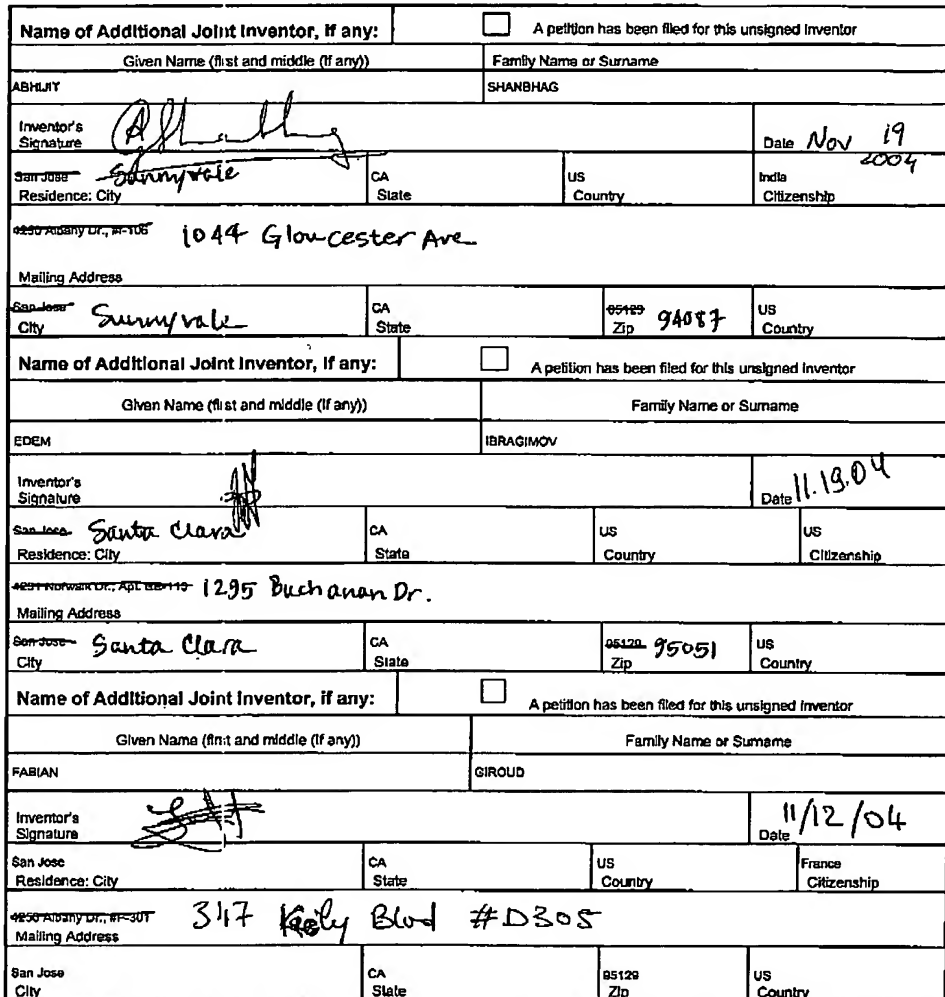 Name of Additional Joint Inventor, if any: A petition has been filed for this unsigned inventor
Given Name (first and middle (if any)) Family Name or Surname
ABHIJIT SHANBHAG
Inventor's
Signature Date Nov 19
2004
San Jose Sunnyvale CA US India
Residence: City State Country Citizenship
4250 Albany Dr., #F-106 1044 Gloucester Ave
Mailing Address
San Jose Sunnyvale CA 95129 94087 US
City State Zip Country
Name of Additional Joint Inventor, if any: A petition has been filed for this unsigned inventor
Given Name (first and middle (if any)) Family Name or Surname
EDEM IBRAGIMOV
Inventor's
Signature Date 11.19.04
San Jose Santa Clara CA US US
Residence: City State Country Citizenship
Norwalk Dr., Apt. 1295 Buchanan Dr.
Mailing Address
San Jose Santa Clara CA 95129 95051 US
City State Zip Country
Name of Additional Joint Inventor, if any: A petition has been filed for this unsigned inventor
Given Name (first and middle (if any)) Family Name or Surname
FABIAN GIROUD
Inventor's
Signature Date 11/12/04
San Jose CA US France
Residence: City State Country Citizenship
4250 Albany Dr., #F-301 347 Keily Blvd #D305
Mailing Address
San Jose CA 95129 US
City State Zip Country